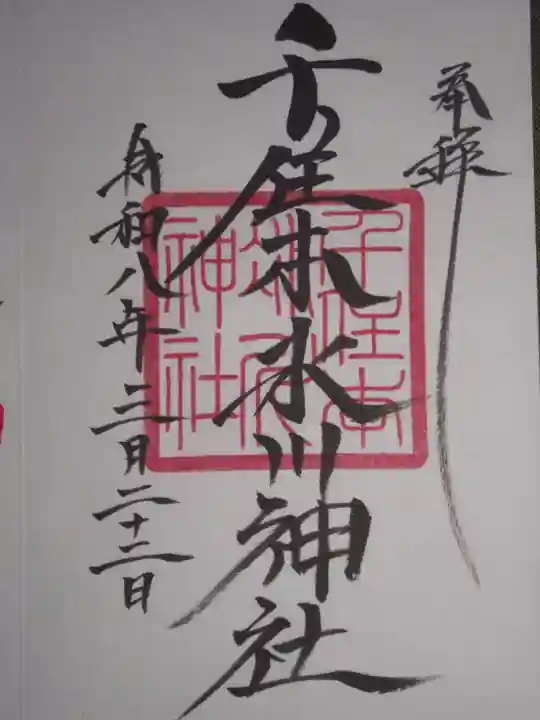 奉拝
千住本氷川神社
千住本
氷川
神社
令和八年三月二十二日